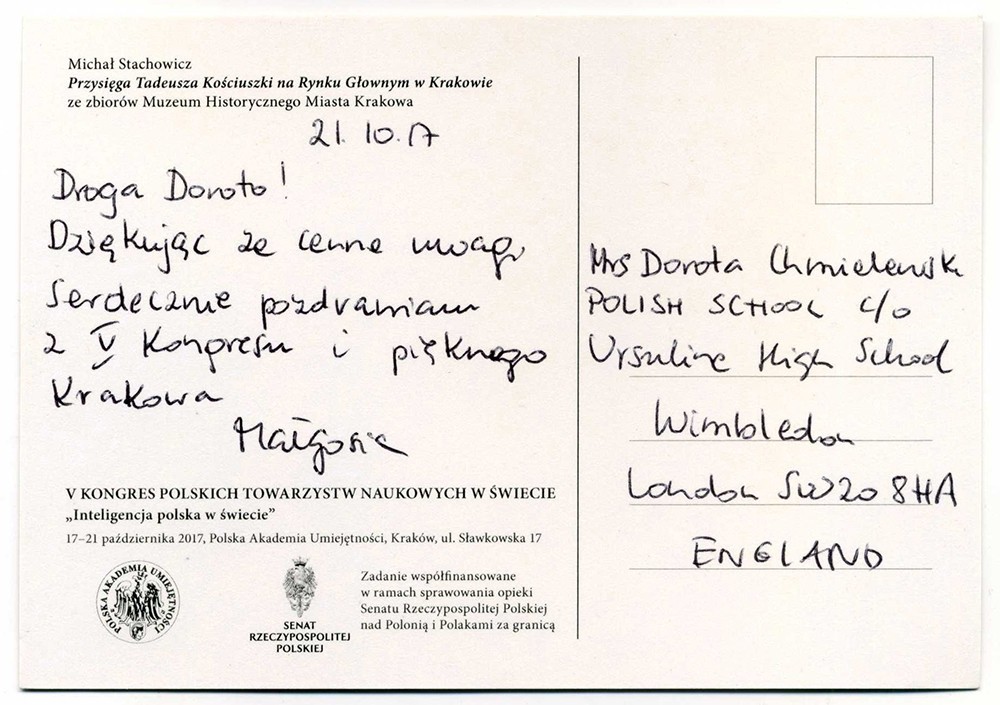 Michał Stachowicz
Przysięga Tadeusza Kościuszki na Rynku Głownym w Krakowie
ze zbiorów Muzeum Historycznego Miasta Krakowa
21.10.17
Droga Doroto!
Dziękując za cenne uwagi,
serdecznie pozdrawiam
z V Kongresu i pięknego
Krakowa
Małgosia
V KONGRES POLSKICH TOWARZYSTW NAUKOWYCH W ŚWIECIE
„Inteligencja polska w świecie”
17–21 października 2017, Polska Akademia Umiejętności, Kraków, ul. Sławkowska 17
POLSKA AKADEMIA UMIEJĘTNOŚCI
SENAT
RZECZYPOSPOLITEJ
POLSKIEJ
Zadanie współfinansowane
w ramach sprawowania opieki
Senatu Rzeczypospolitej Polskiej
nad Polonią i Polakami za granicą
Mrs Dorota Chmielewsk
POLISH SCHOOL c/o
Ursuline High School
Wimbledon
London SW20 8HA
ENGLAND